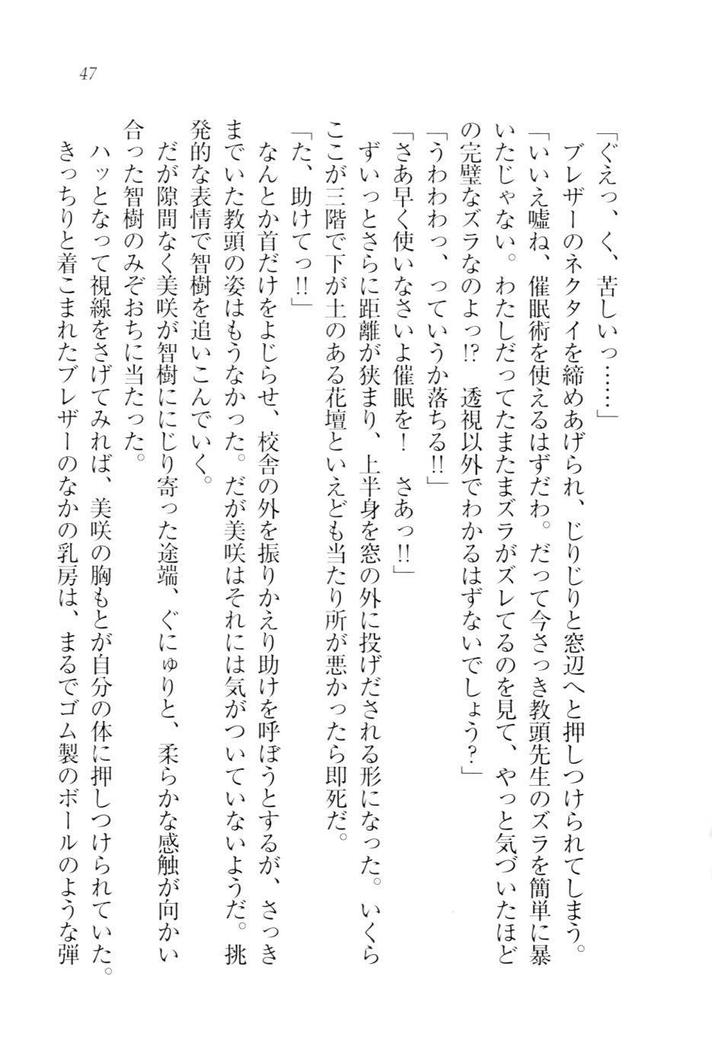 47
「ぐえっ、く、苦しいっ……」
ブレザーのネクタイを締めあげられ、じりじりと窓辺へと押しつけられてしまう。
「いいえ嘘ね、催眠術を使えるはずだわ。だって今さっき教頭先生のズラを簡単に暴
いたじゃない。わたしだってたまたまズラがズレてるのを見て、やっと気づいたほど
の完璧なズラなのよっ!?　透視以外でわかるはずないでしょう?」
「うわわわっ、っていうか落ちる!!」
「さあ早く使いなさいよ催眠を!　さあっ!!」
ずいっとさらに距離が狭まり、上半身を窓の外に投げだされる形になった。いくら
ここが三階で下が土のある花壇といえども当たり所が悪かったら即死だ。
「た、助けてっ!!」
なんとか首だけをよじらせ、校舎の外を振りかえり助けを呼ぼうとするが、さっき
までいた教頭の姿はもうなかった。だが美咲はそれには気がついていないようだ。挑
発的な表情で智樹を追いこんでいく。
だが隙間なく美咲が智樹ににじり寄った途端、ぐにゅりと、柔らかな感触が向かい
合った智樹のみぞおちに当たった。
ハッとなって視線をさげてみれば、美咲の胸もとが自分の体に押しつけられていた。
きっちりと着こまれたブレザーのなかの乳房は、まるでゴム製のボールのような弾